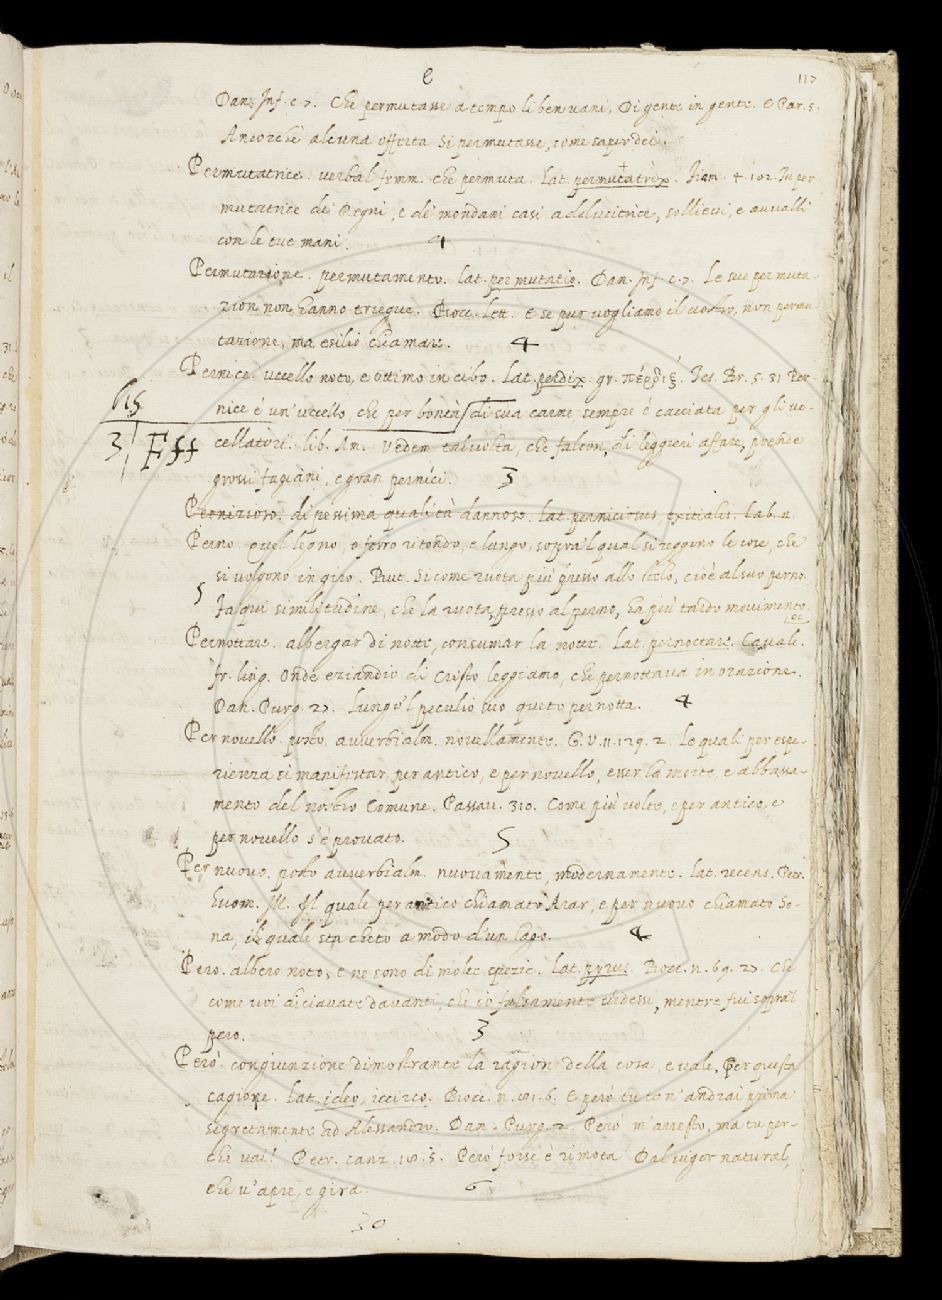 e
117
Dan. Inf. c. 7. Che permutasse a tempo li ben vani, Di gente in gente. E Par. 5.
Ancorchè alcuna offerta si permutasse, come saper dei.
Permutatrice. verbal femm. che permuta. lat. permutatrix. Fiam. 4. 102. O per
mutatrice de' Regni, e de' mondani casi adducitrice, sollievi, e avvalli
con le tue mani. 4
Permutazione. permutamento. lat. permutatio. Dan. Inf. c. 7. Le sue permuta-
zion non hanno triegue. Bocc. Lett. E se pur vogliamo il vostro, non permu
tazione, ma esilio chiamare. 4
Pernice. uccello noto, e ottimo in cibo. Lat. perdix. gr. πέρδιξ. Tes. Br. 5. 31 Per-
nice è un' uccello, che per bontà di sua carne sempre è cacciata per gli uc-
615
3 Fff
cellatori. lib. Am. Vedem talvolta, che falcon, di leggieri affare, prende
grossi fagiani, e gran pernici. 3
Pernizioso. di pessima qualità dannoso. lat. perniciosus, exitialis. Lab. a
Perno. quel legno, o ferro ritondo, e lungo, sopra 'l qual si reggono le cose, che
si volgono in giro. But. Si come ruota più presso allo cielo, cioè al suo perno.
5 Fa qui similitudine, che la ruota, presso al perno, ha più tardo movimento.
Pernottare. albergar di notte, consumar la notte. Lat. pernoctare. Cavalc.
fr. ling. Onde eziandio di Cristo leggiamo, che pernottava in orazione.
Dan. Purg. 27. Lungo 'l peculio suo queto pernotta. 4
Per novello. posto avverbialm. novellamente. G. V. 11. 129. 2. Le quali per espe-
rienza si manifestar, per antico, e per novello, esser la morte, e abbassa-
mento del nostro Comune. Passav. 310. Come più volte, e per antico, e
per novello s'è provato. 5
Per nuovo. posto avverbialm. nuovamente, modernamente. lat. recens. Petr.
huom. ill. Il quale per antico chiamato Arar, e per nuovo chiamato So-
na, il quale sta cheto a modo d'un lago. 4
Pero. albero noto, e ne sono di molte spezie. Lat. pyrus. Bocc. n. 69. 27. Che
come voi diciavate davanti, che io falsamente vedessi, mentre fui sopra 'l
pero. 3
Però. congiunzione dimostrante la ragion della cosa, e vale, Per questa
cagione. Lat. ideo, iccirco. Bocc. n. 101. 6. E però tu te n' andrai prima
segretamente ad Alessandro. Dan. Purg. 2. Però m'arresto, ma tu per-
chè vai? Petr. canz. 108. 5. Però forse è rimota Dal vigor natural,
che v' apre, e gira. 6
30